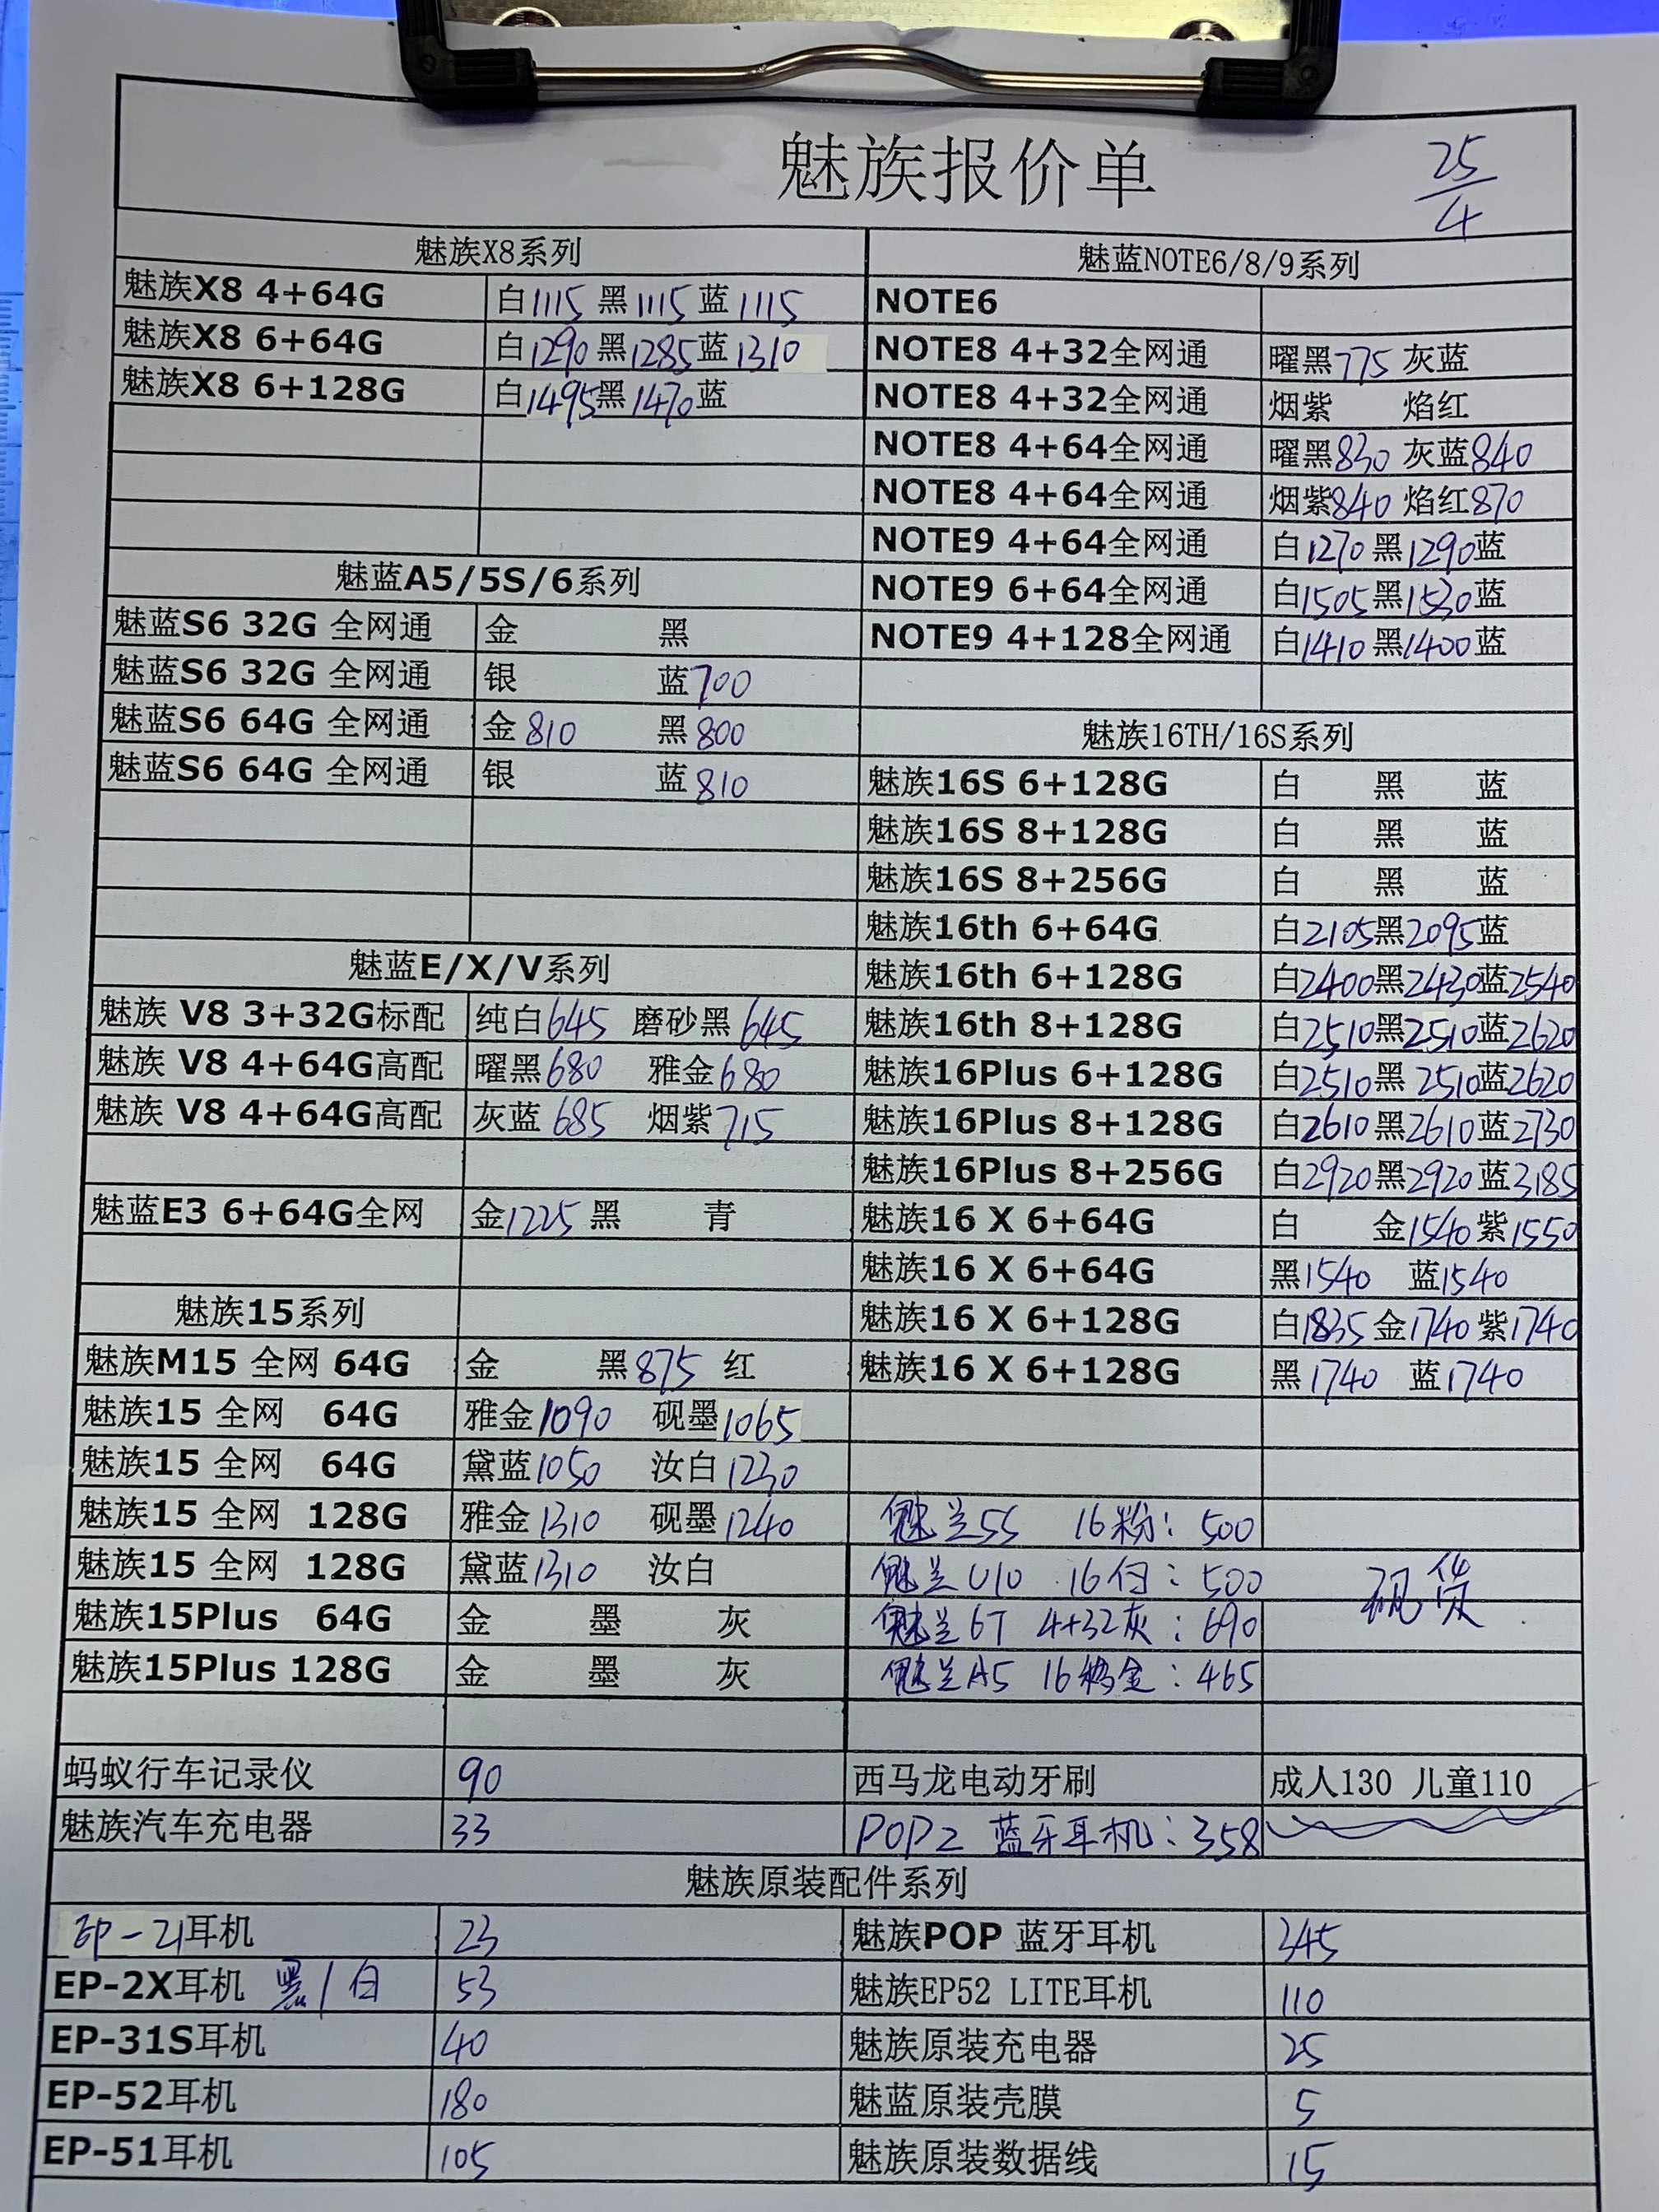 魅族报价单
25/4
魅族X8系列
魅族X8 4+64G 白1115 黑1115 蓝1115
魅族X8 6+64G 白1290 黑1285 蓝1310
魅族X8 6+128G 白1495 黑1470 蓝
魅蓝A5/5S/6系列
魅蓝S6 32G 全网通 金 黑
魅蓝S6 32G 全网通 银 蓝700
魅蓝S6 64G 全网通 金810 黑800
魅蓝S6 64G 全网通 银 蓝810
魅蓝E/X/V系列
魅族 V8 3+32G标配 纯白645 磨砂黑645
魅族 V8 4+64G高配 曜黑680 雅金680
魅族 V8 4+64G高配 灰蓝685 烟紫715
魅蓝E3 6+64G全网 金1225 黑 青
魅族15系列
魅族M15 全网 64G 金 黑875 红
魅族15 全网 64G 雅金1090 砚墨1065
魅族15 全网 64G 黛蓝1050 汝白1230
魅族15 全网 128G 雅金1310 砚墨1240
魅族15 全网 128G 黛蓝1310 汝白
魅族15Plus 64G 金 墨 灰
魅族15Plus 128G 金 墨 灰
魅蓝NOTE6/8/9系列
NOTE6
NOTE8 4+32全网通 曜黑775 灰蓝
NOTE8 4+32全网通 烟紫 焰红
NOTE8 4+64全网通 曜黑830 灰蓝840
NOTE8 4+64全网通 烟紫840 焰红870
NOTE9 4+64全网通 白1270 黑1290 蓝
NOTE9 6+64全网通 白1505 黑1530 蓝
NOTE9 4+128全网通 白1410 黑1400 蓝
魅族16TH/16S系列
魅族16S 6+128G 白 黑 蓝
魅族16S 8+128G 白 黑 蓝
魅族16S 8+256G 白 黑 蓝
魅族16th 6+64G 白2105 黑2095 蓝
魅族16th 6+128G 白2400 黑2430 蓝2540
魅族16th 8+128G 白2510 黑2510 蓝2620
魅族16Plus 6+128G 白2510 黑2510 蓝2620
魅族16Plus 8+128G 白2610 黑2610 蓝2730
魅族16Plus 8+256G 白2920 黑2920 蓝3185
魅族16 X 6+64G 白 金1540 紫1550
魅族16 X 6+64G 黑1540 蓝1540
魅族16 X 6+128G 白1835 金1740 紫1740
魅族16 X 6+128G 黑1740 蓝1740
魅兰5S 16粉：500
魅兰U10 16白：500
现货
魅兰6T 4+32灰：690
魅兰A5 16 金：465
蚂蚁行车记录仪 90 西马龙电动牙刷 成人130 儿童110
魅族汽车充电器 33 POP2 蓝牙耳机：358
魅族原装配件系列
EP-21耳机 23 魅族POP 蓝牙耳机 345
EP-2X耳机 黑/白 53 魅族EP52 LITE耳机 110
EP-31S耳机 40 魅族原装充电器 25
EP-52耳机 180 魅蓝原装壳膜 5
EP-51耳机 105 魅族原装数据线 15